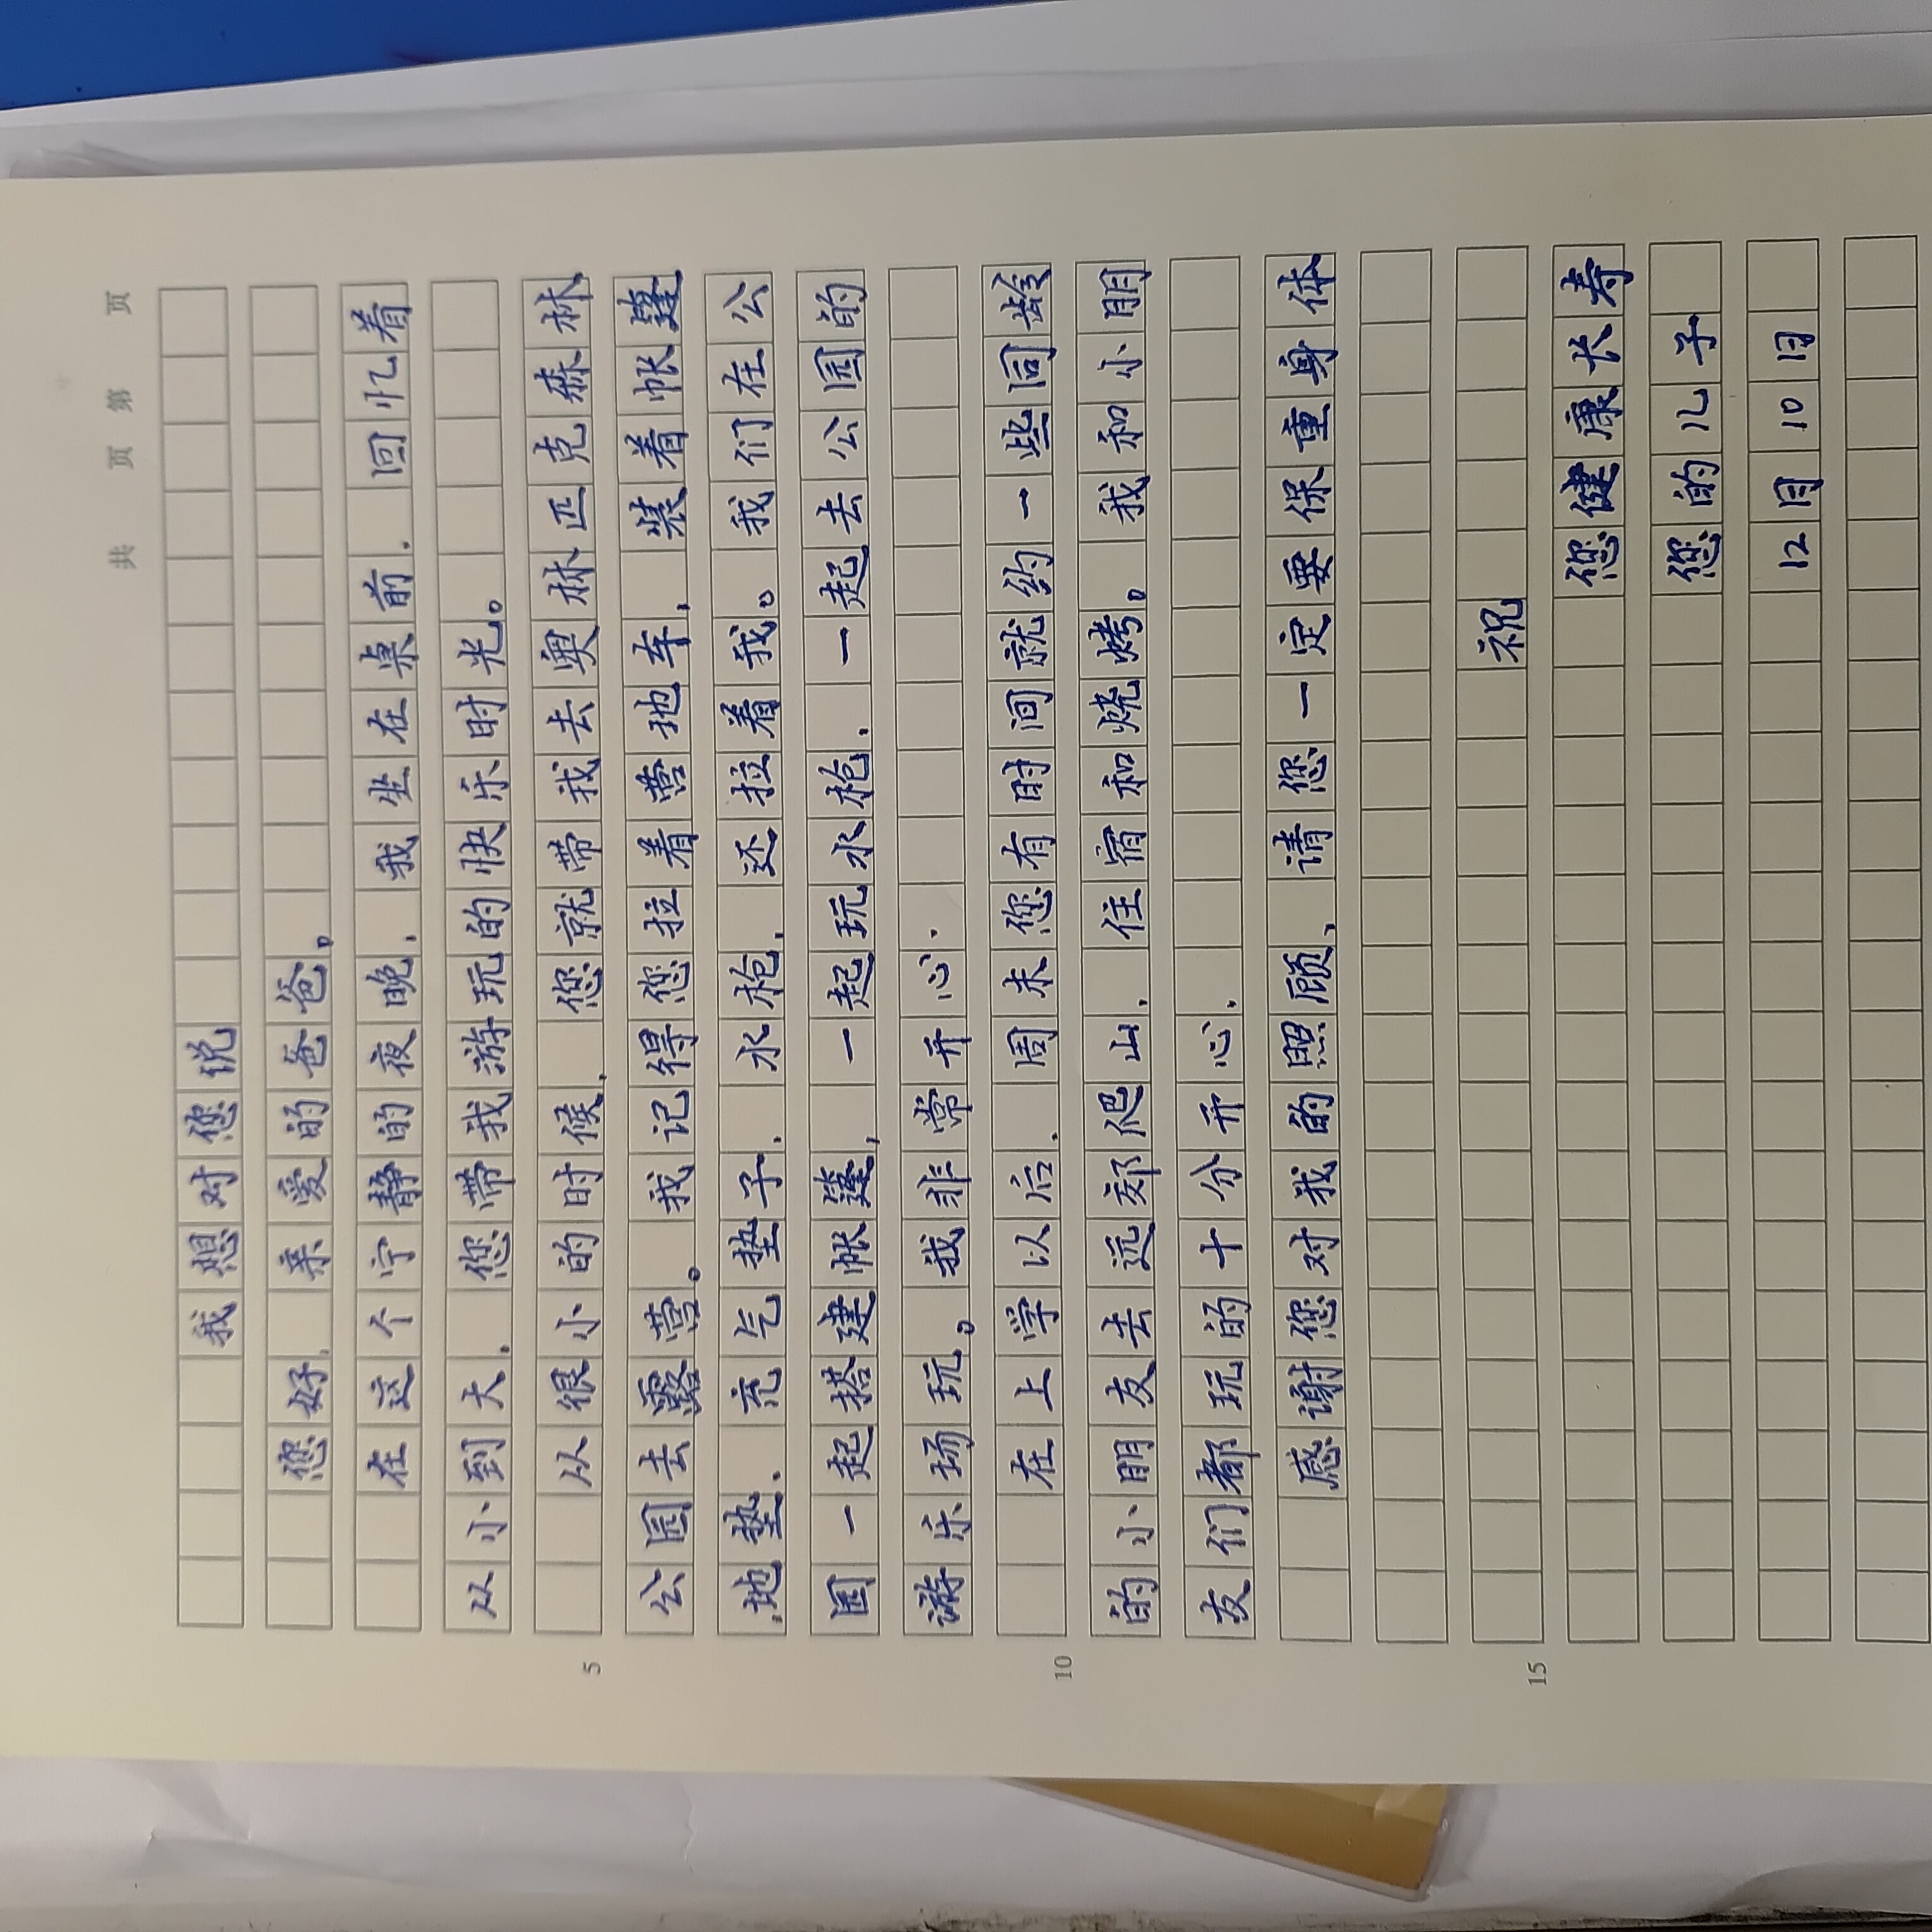 共 页 第 页
我想对您说
您好,亲爱的爸爸。
在这个宁静的夜晚,我坐在桌前,回忆着
从小到大,您带我游玩的快乐时光。
从很小的时候,您就带我去奥林匹克森林
公园去露营。我记得您拉着营地车,装着帐篷
地垫,充气垫子,水枪,还拉着我。我们在公
园一起搭建帐篷,一起玩水枪,一起去公园的
游乐场玩。我非常开心.
在上学以后,周末您有时间就约一些同龄
的小朋友去远郊爬山,住宿和烧烤。我和小朋
友们都玩的十分开心.
感谢您对我的照顾,请您一定要保重身体
祝
您健康长寿
您的儿子
12月10日
5
10
15